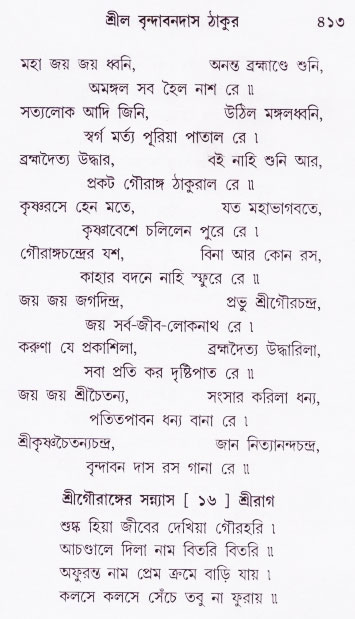 শ্রীল বৃন্দাবনদাস ঠাকুর ৪১৩
মহা জয় জয় ধ্বনি, অনন্ত ব্রহ্মাণ্ডে শুনি,
অমঙ্গল সব হৈল নাশ রে ॥
সত্যলোক আদি জিনি, উঠিল মঙ্গলধ্বনি,
স্বর্গ মর্ত্য পূরিয়া পাতাল রে ।
ব্রহ্মদৈত্য উদ্ধার, বই নাহি শুনি আর,
প্রকট গৌরাঙ্গ ঠাকুরাল রে ॥
কৃষ্ণরসে হেন মতে, যত মহাভাগবতে,
কৃষ্ণাবেশে চলিলেন পুরে রে ।
গৌরাঙ্গচন্দ্রের যশ, বিনা আর কোন রস,
কাহার বদনে নাহি স্ফুরে রে ॥
জয় জয় জগদিন্দ্র, প্রভু শ্রীগৌরচন্দ্র,
জয় সর্ব-জীব-লোকনাথ রে ।
করুণা যে প্রকাশিলা, ব্রহ্মদৈত্য উদ্ধারিলা,
সবা প্রতি কর দৃষ্টিপাত রে ॥
জয় জয় শ্রীচৈতন্য, সংসার করিলা ধন্য,
পতিতপাবন ধন্য বানা রে ।
শ্রীকৃষ্ণচৈতন্যচন্দ্র, জান নিত্যানন্দচন্দ্র,
বৃন্দাবন দাস রস গানা রে ॥
শ্রীগৌরাঙ্গের সন্ন্যাস [ ১৬ ] শ্রীরাগ
শুষ্ক হিয়া জীবের দেখিয়া গৌরহরি ।
আচণ্ডালে দিলা নাম বিতরি বিতরি ॥
অফুরন্ত নাম প্রেম ক্রমে বাড়ি যায় ।
কলসে কলসে সেঁচে তবু না ফুরায় ॥